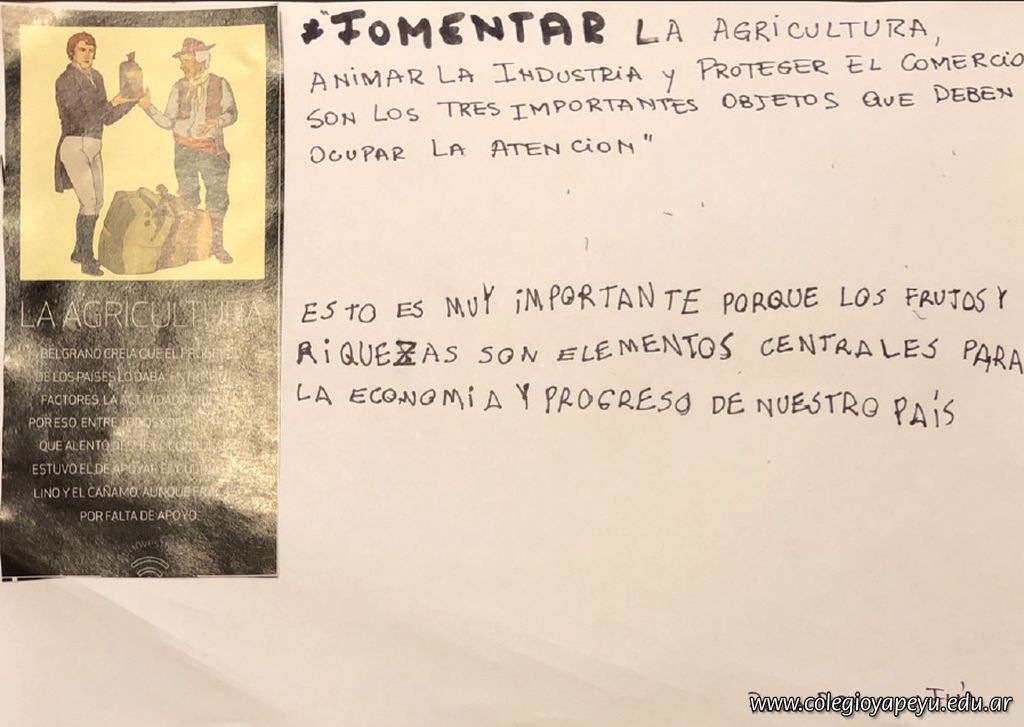 "FOMENTAR LA AGRICULTURA,
ANIMAR LA INDUSTRIA Y PROTEGER EL COMERCIO
SON LOS TRES IMPORTANTES OBJETOS QUE DEBEN
OCUPAR LA ATENCION"
ESTO ES MUY IMPORTANTE PORQUE LOS FRUTOS Y
RIQUEZAS SON ELEMENTOS CENTRALES PARA
LA ECONOMIA Y PROGRESO DE NUESTRO PAÍS
LA AGRICULTURA
BELGRANO CREIA QUE EL
DE LOS PAÍSES LO DABA, ENTRE
FACTORES, LA ACTIVIDAD
POR ESO, ENTRE TODOS
QUE ALENTÓ DESDE EL
ESTUVO EL DE APOYAR EL
LINO Y EL CAÑAMO, AUNQUE
POR FALTA DE APOYO.
www.colegioyapeyu.edu.ar